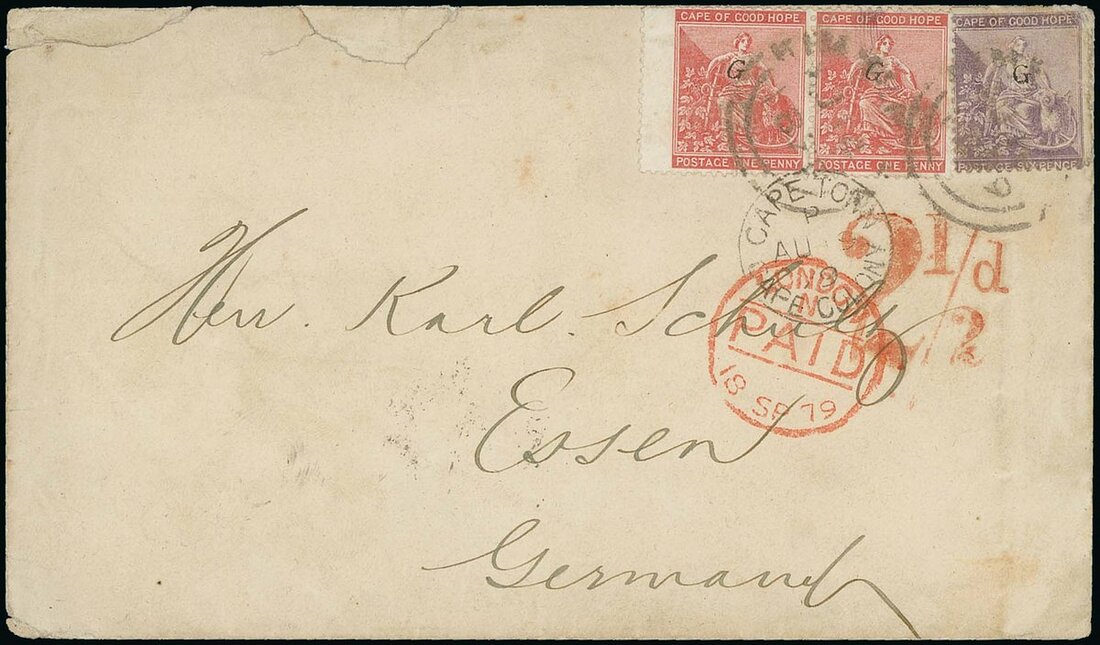 CAPE OF GOOD HOPE CAPE OF GOOD HOPE CAPE OF GOOD HOPE
G G G
POSTAGE ONE PENNY POSTAGE ONE PENNY POSTAGE SIXPENCE
CAPE TOWN
AU
2 1/2 d
LONDON
PAID
18 SP 79
Herr. Karl. Schultz
Essen
Germany